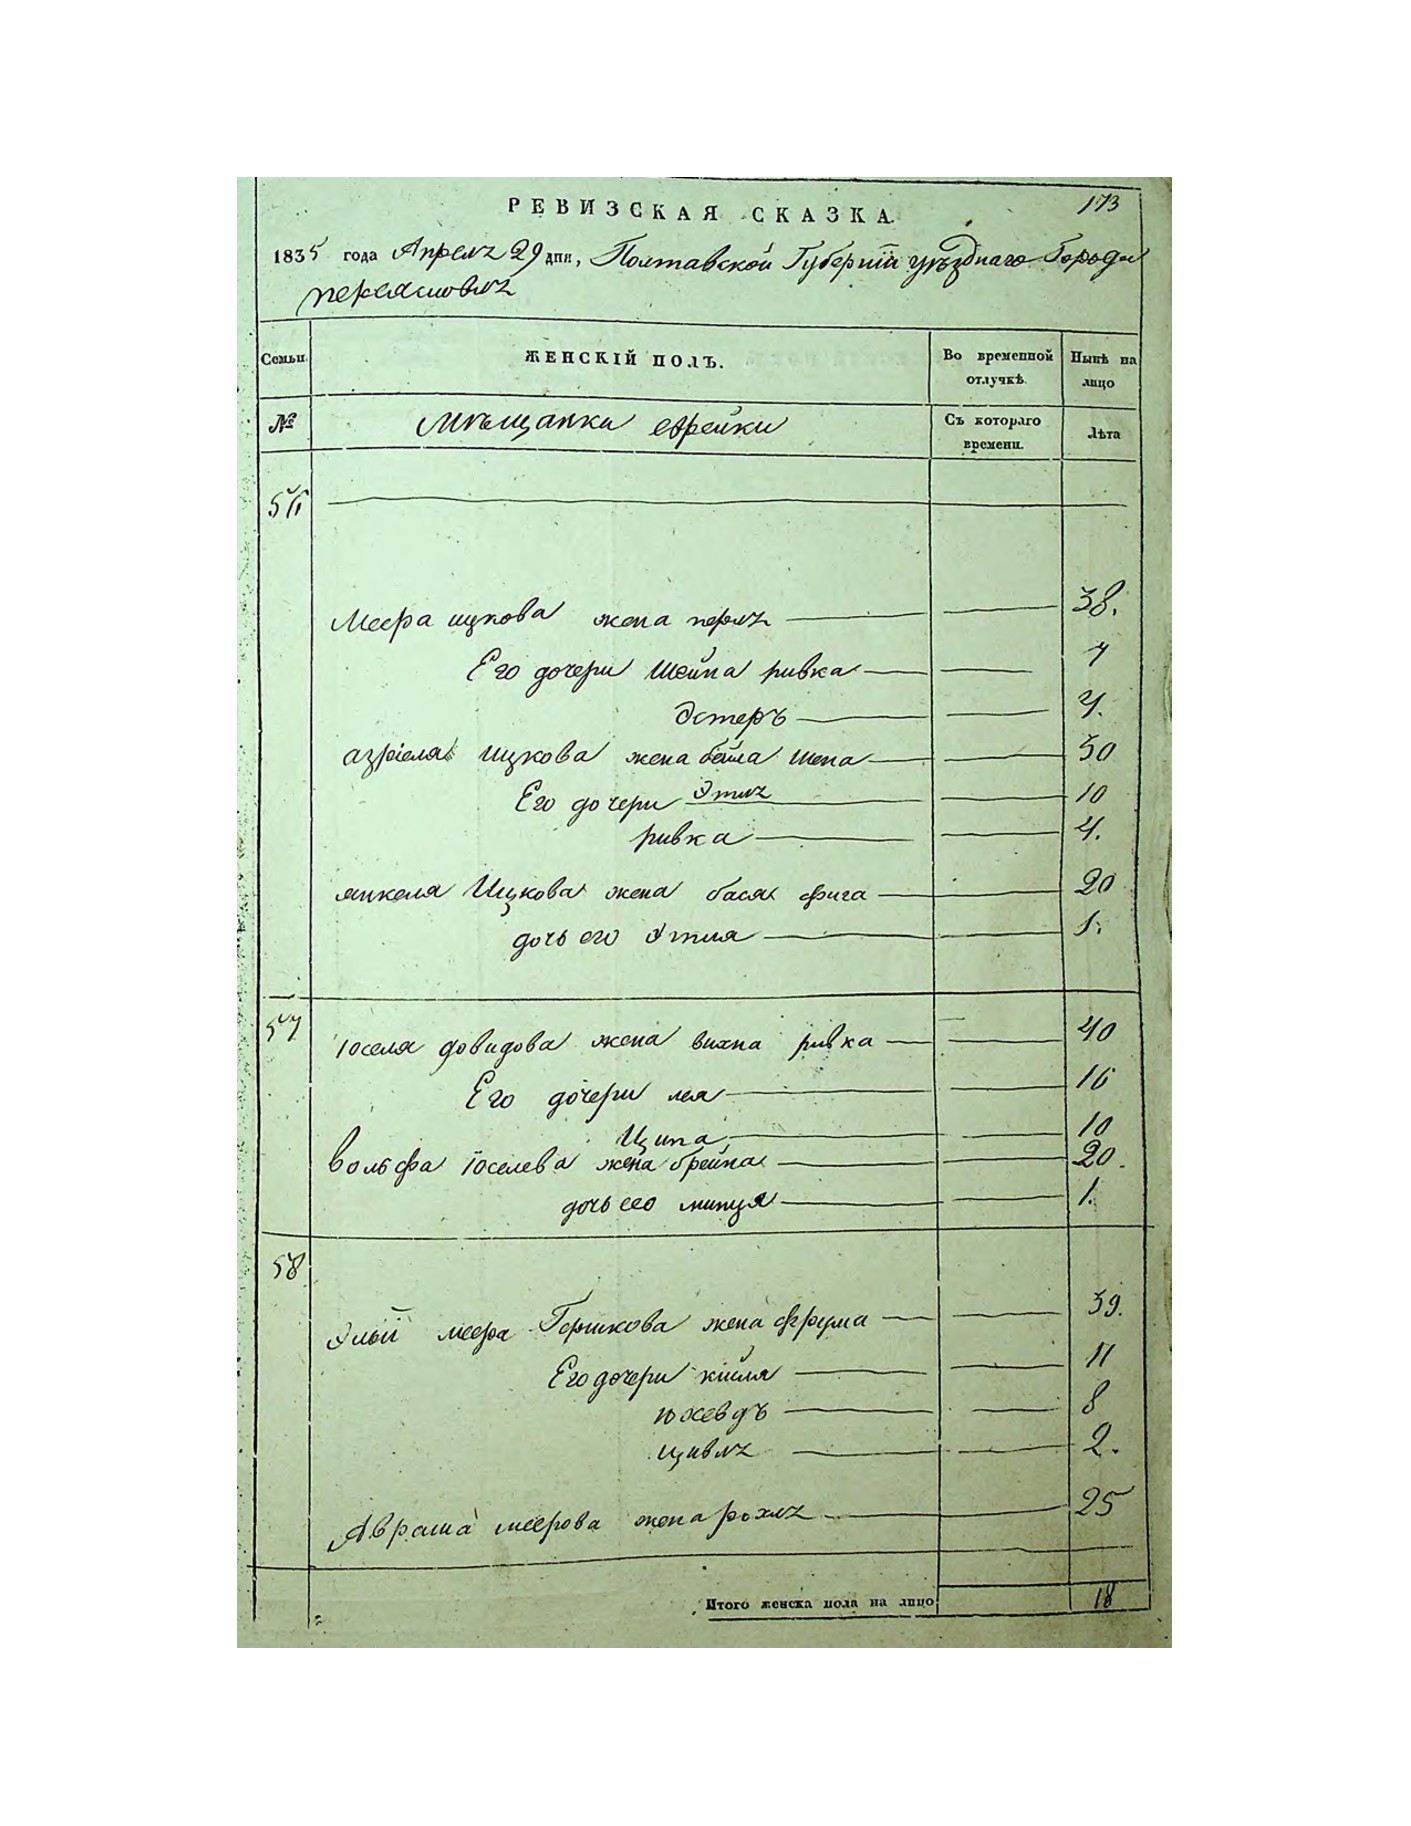 173
РЕВИЗСКАЯ СКАЗКА.
1835 года Апреля 29 дня, Полтавской Губернїи уѣзднаго Города
переяславля
Семьи ЖЕНСКІЙ ПОЛЪ. Во временной отлучкѣ. Нынѣ на лицо
№ Мѣщанки еврейки Съ котораго времени. Лѣта
56
Меера ицкова жена перля 38.
Его дочери Шейна ривка 7
Эстеръ 4.
азріеля Ицкова жена бейла шена 30
Его дочери Этля 10
ривка 4.
янкеля Ицкова жена бася фига 20
дочь его Этля 1.
57
іоселя довидова жена вихна ривка 40
Его дочери лея 16
Ципа 10
вольфа іоселева жена брейна 20.
дочь его минця 1.
58
Элыи меера Горшкова жена фрума 39.
Его дочери кийля 11
юхевдъ 8
цивля 2.
Аврама меерова жена рохля 25
Итого женска пола на лицо 18